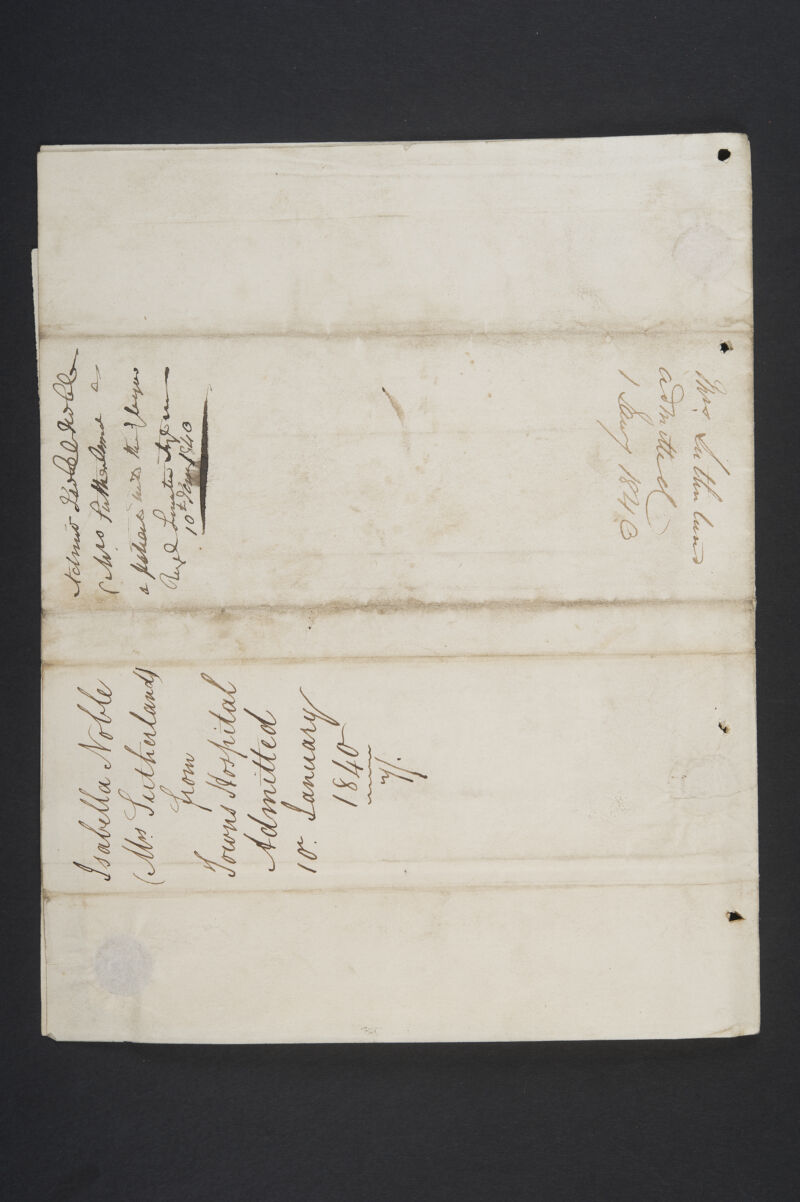 Isabella Noble
(Mrs Sutherland)
from
Towns Hospital
Admitted
10. January
1840
Admit Isabel Noble
(Mrs Sutherland
a patient into the Glasgow
Royal Lunatic Asylum
10th Jany 1840
Mrs Sutherland
admitted
1 Jany 1843